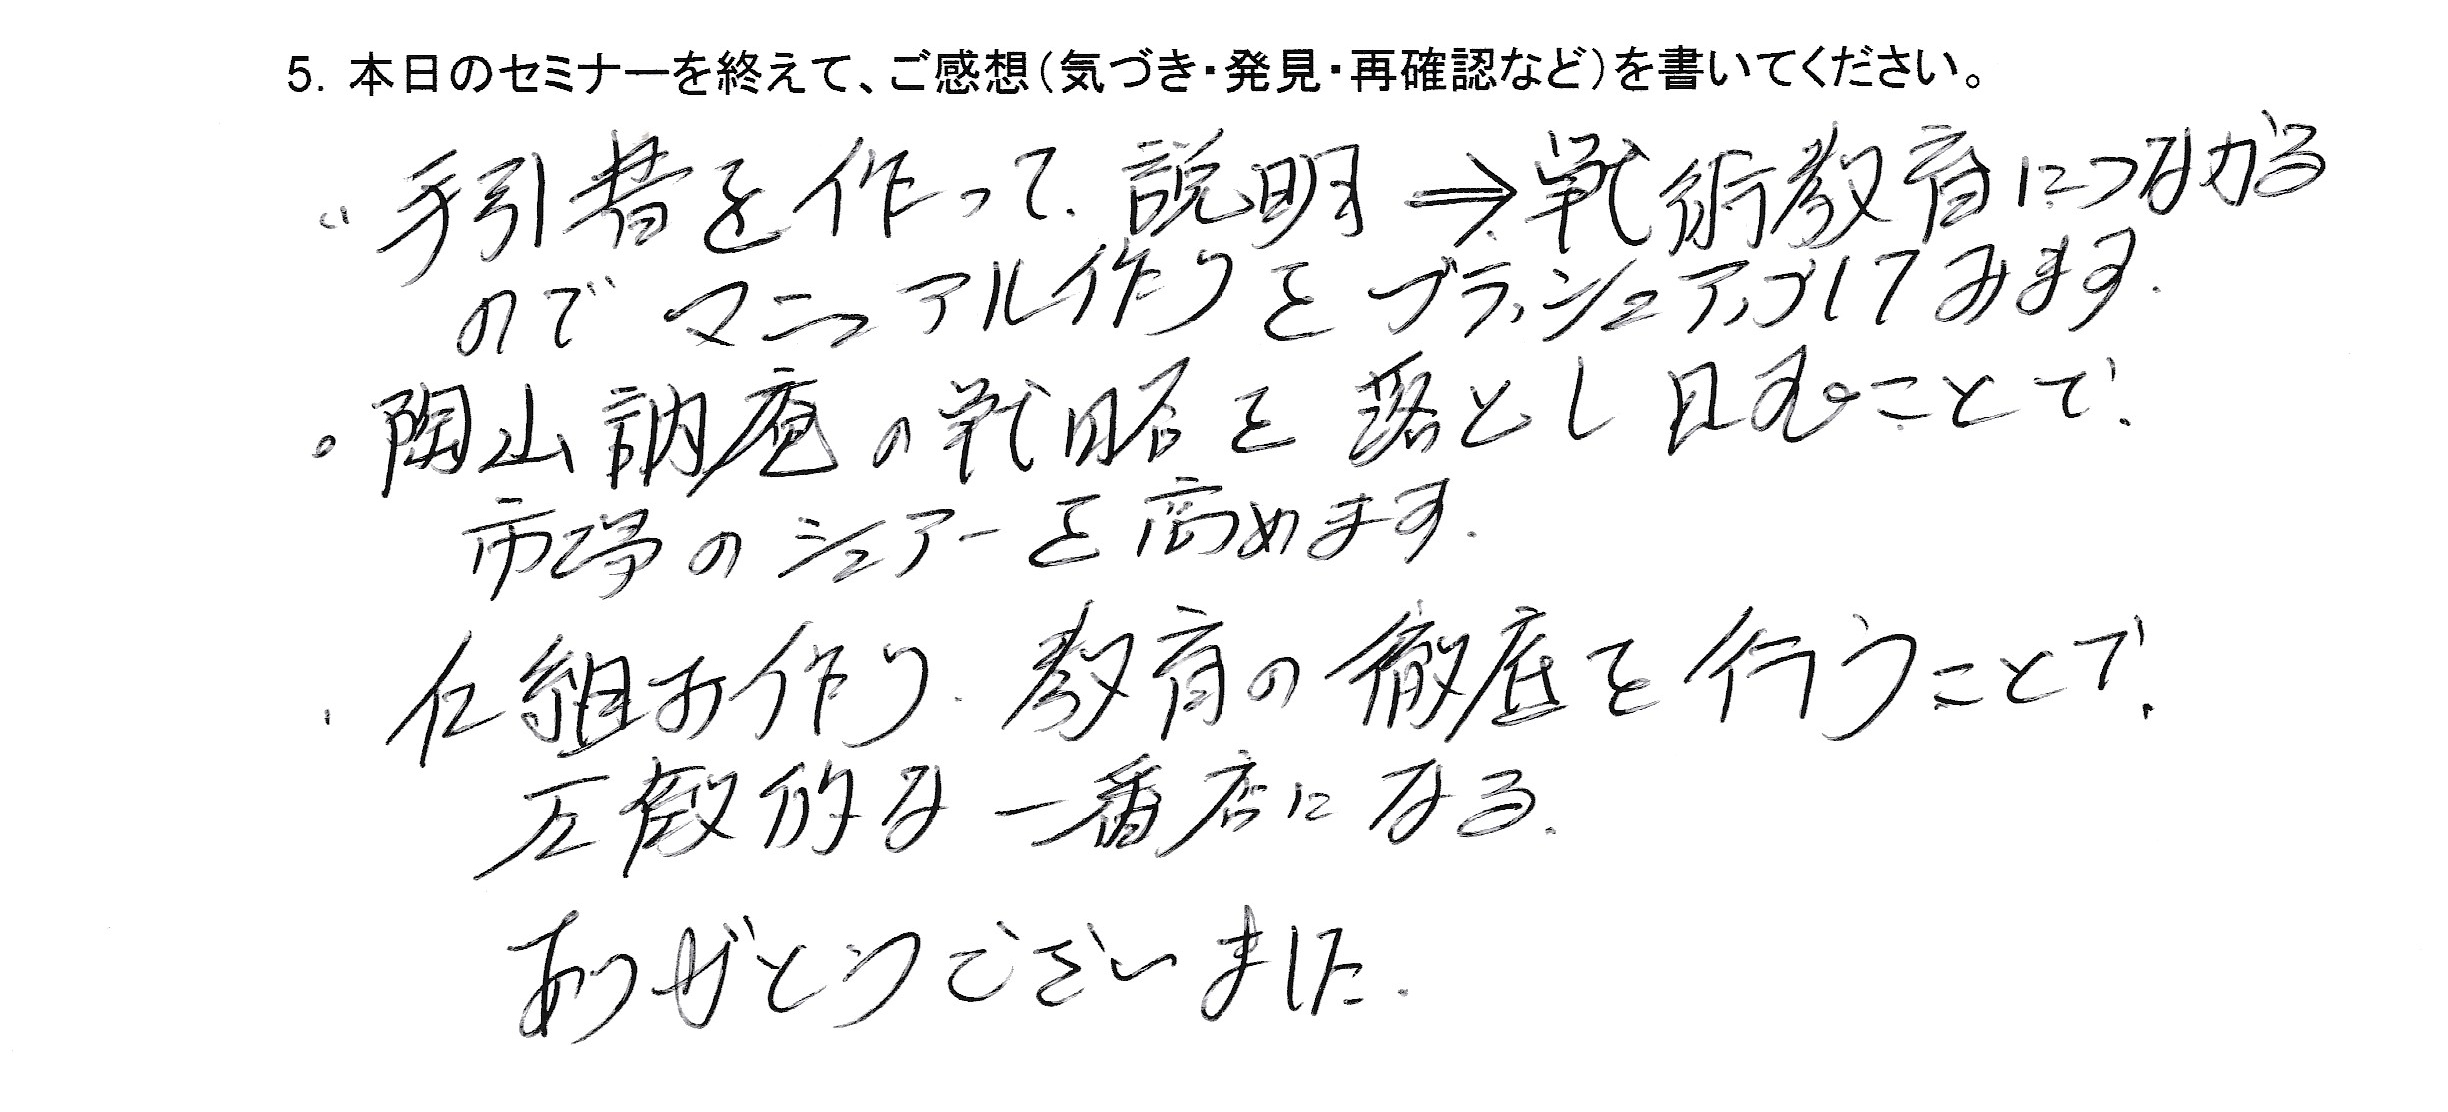 5. 本日のセミナーを終えて、ご感想(気づき・発見・再確認など)を書いてください。
・手引書を作って、説明⇒戦術教育につながる
のでマニュアル作りをブラッシュアップしてみます.
・陶山訥庵の戦略を落とし込むことで、
市場のシェアーを高めます.
・仕組み作り、教育の徹底を行うことで、
圧倒的な一番店になる.
ありがとうございました.